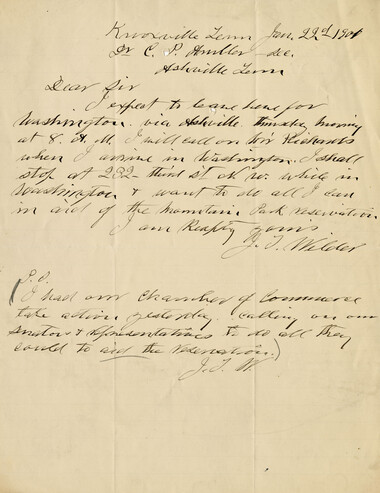 Knoxville Tenn Jan. 22d 1901
Dr C. P. Ambler Sec.
Ashville Tenn
Dear Sir
I expect to leave here for
Washington via Ashville thursday morning
at 8. A.M. I will call on Mr Richards
when I arrive in Washington. I shall
stop at 232 third st N.W. while in
Washington & want to do all I can
in aid of the Mountain Park reservation
I am Respty yours
J. T. Wilder
P.S.
(I had our Chamber of Commerce
take action yesterday calling on our
senators & representatives to do all they
could to aid the reservation.)
J. T. W.